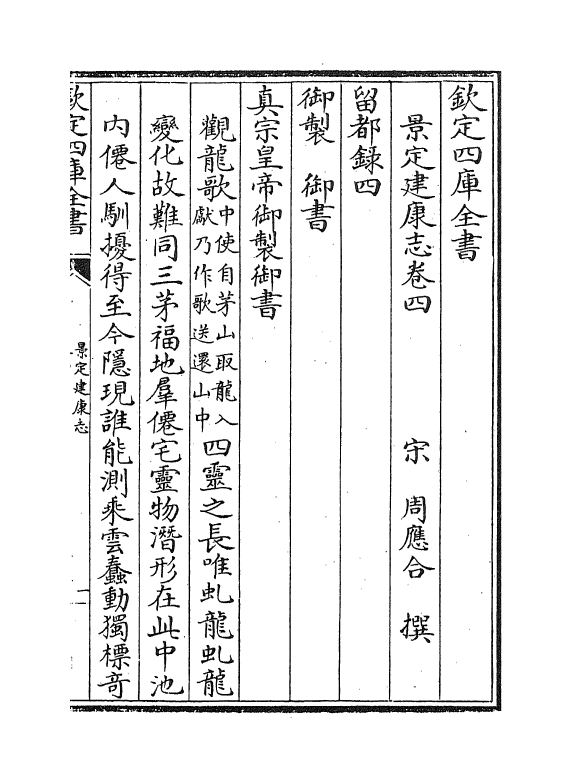 欽定四庫全書
景定建康志卷四
宋 周應合 撰
留都錄四
御製 御書
真宗皇帝御製御書
觀龍歌中使自茅山取龍入獻乃作歌送還山中四靈之長唯虬龍虬龍
變化故難同三茅福地羣僊宅靈物潛形在此中池
內僊人馴擾得至今隱現誰能測乘雲蠢動獨標奇
欽定四庫全書
景定建康志